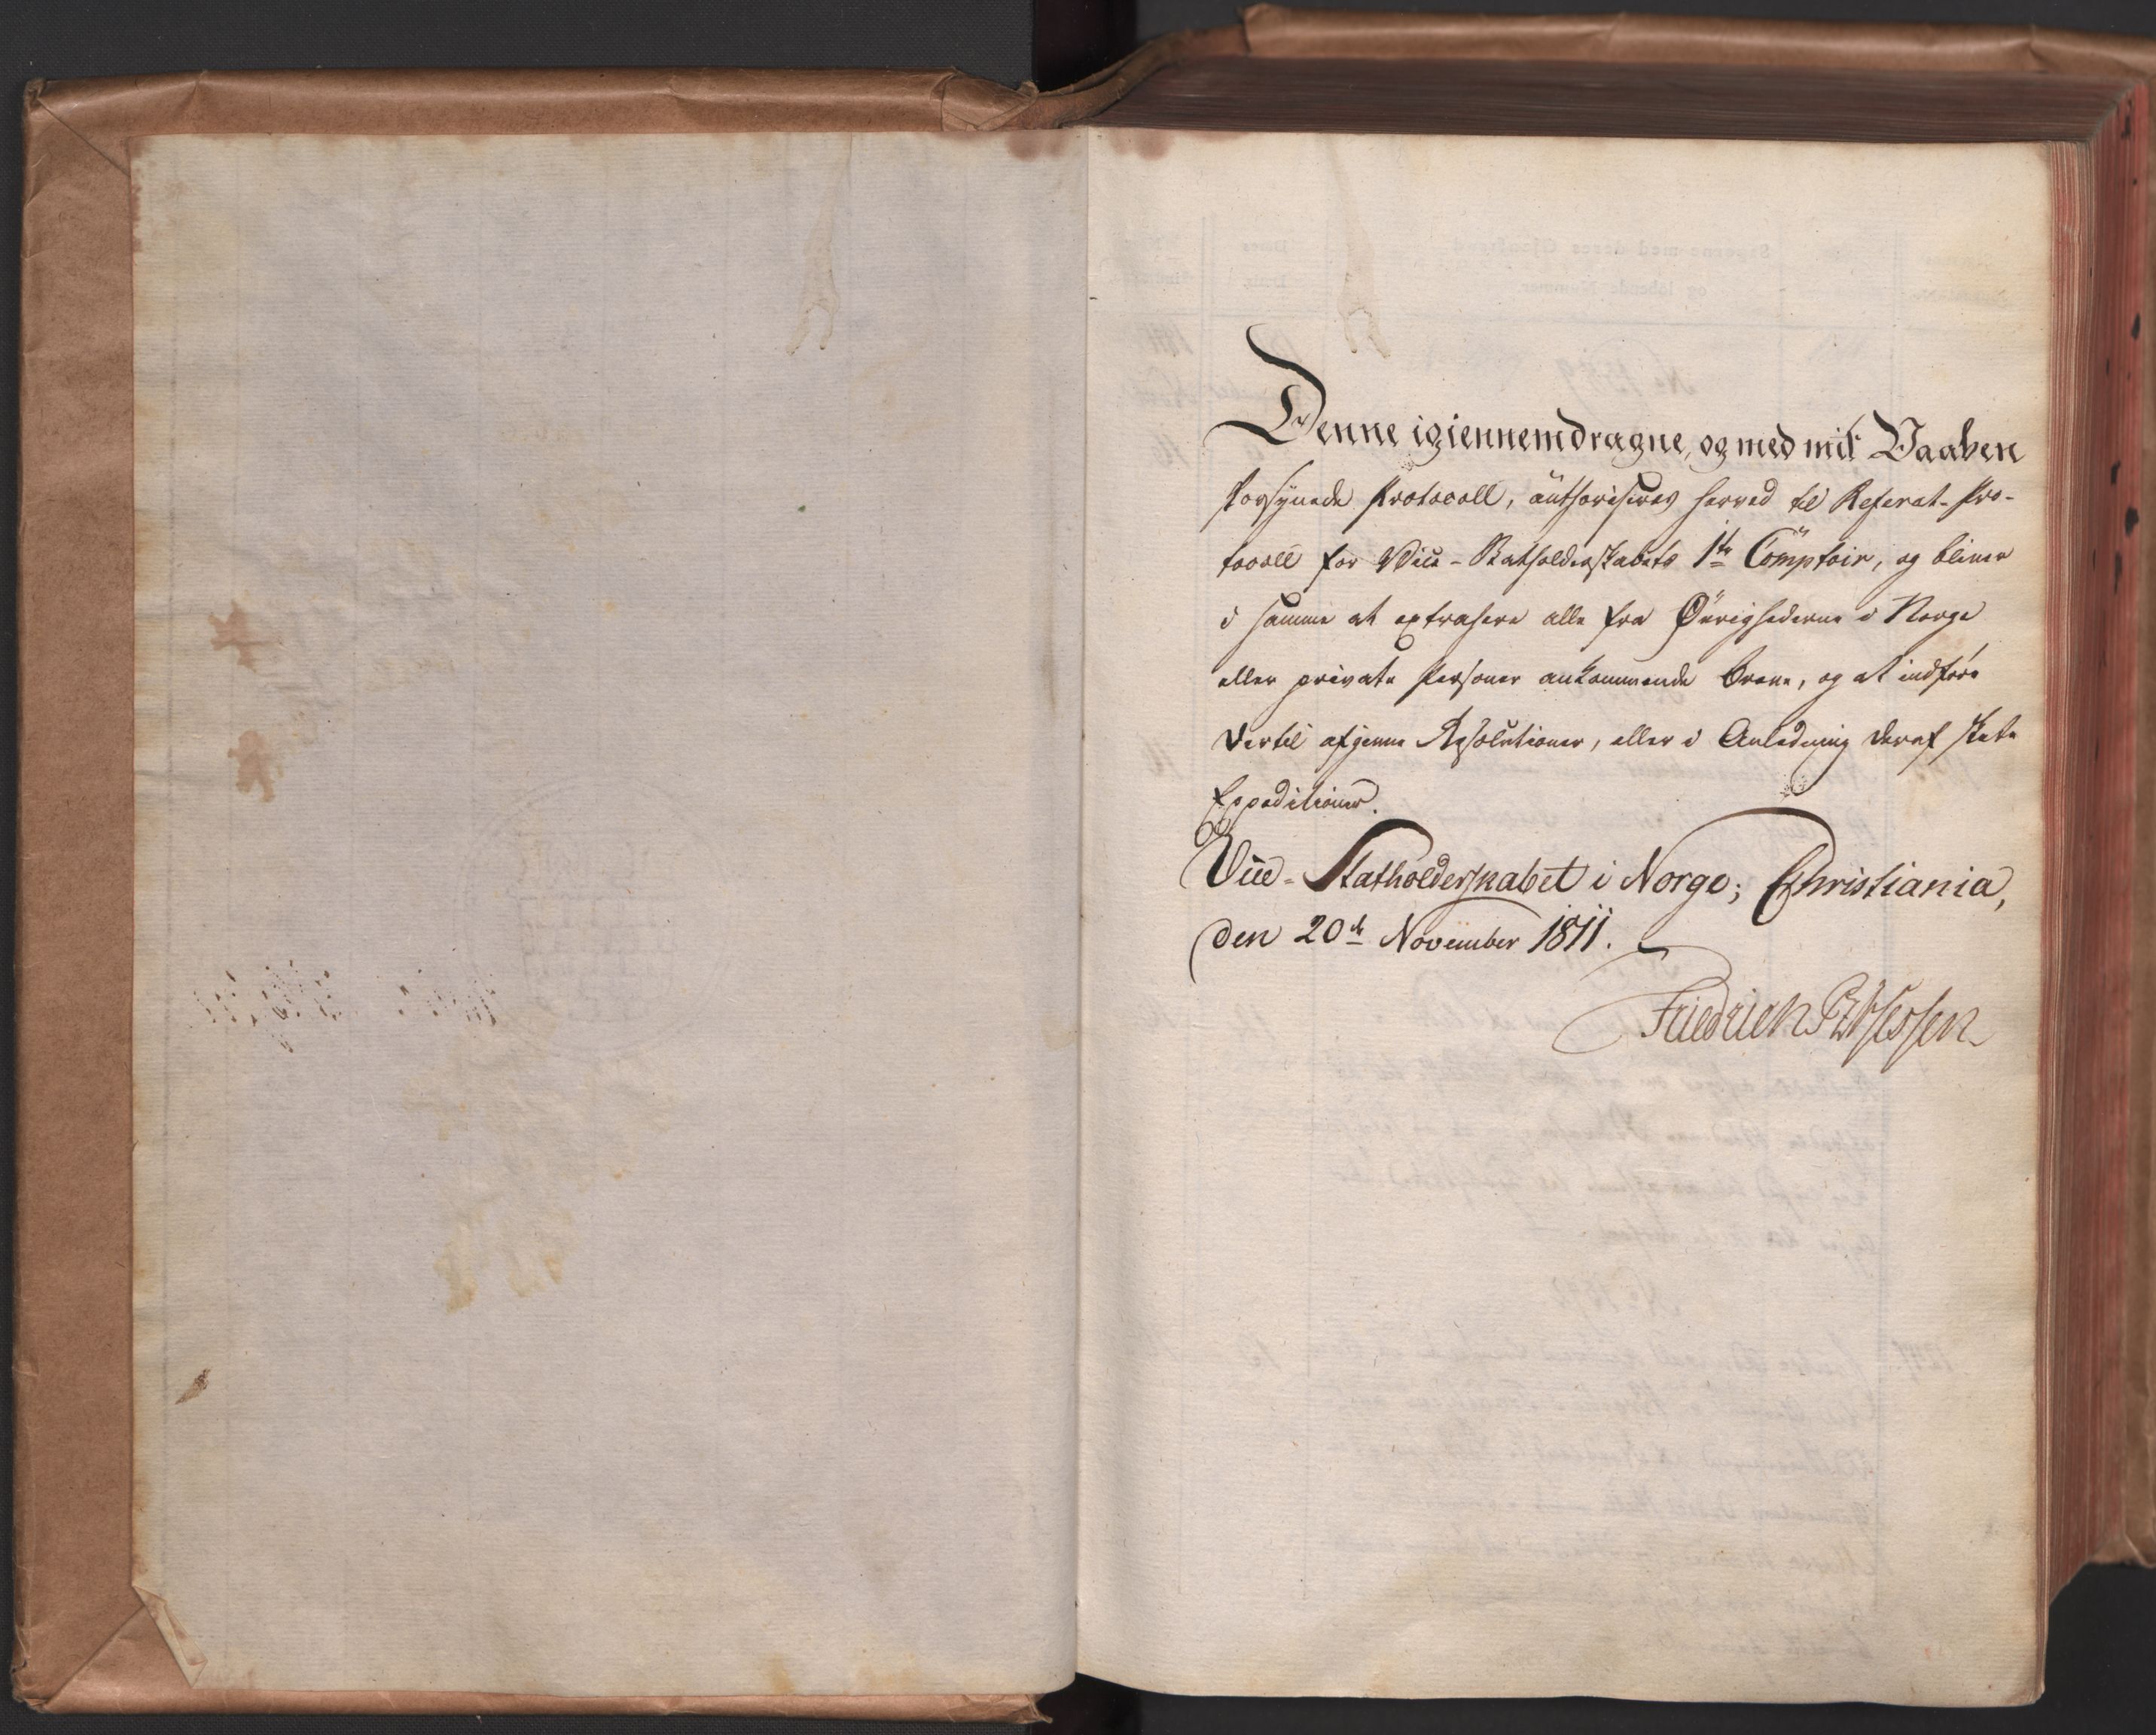 Denne igiennemdragne, og med mit Vaaben
forsÿnede Protocoll, aŭthoriseres herved til Referat-Pro-
tocoll for Vice-Statholderskabets 1te Comptoir, og bliver
i samme at extrahere alle fra Øvrighederne i Norge
eller private Personer ankommende Breve, og at indføre
dertil afgivne Resolŭtioner, eller i Anledning deraf skete
Expeditioner.
Vice-Statholderskabet i Norge; Christiania,
den 20de November 1811.
Friedrich PzHessen